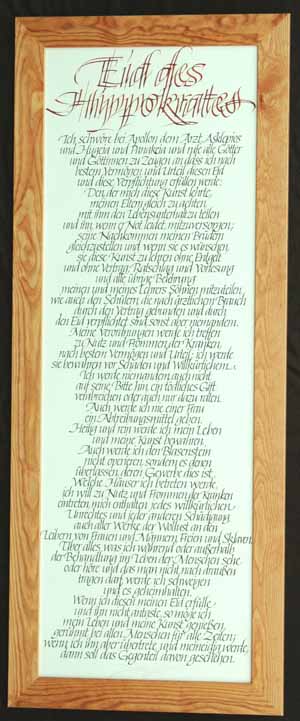 Eid des
Hippokrates
Ich schwöre bei Apollon dem Arzt, Asklepios
und Hygieia und Panakeia und rufe alle Götter
und Göttinnen zu Zeugen an, dass ich nach
bestem Vermögen und Urteil diesen Eid
und diese Verpflichtung erfüllen werde:
Den, der mich diese Kunst lehrte,
meinen Eltern gleich zu achten,
mit ihm den Lebensunterhalt zu teilen
und ihn, wenn er Not leidet, mitzuversorgen;
seine Nachkommen meinen Brüdern
gleichzustellen und, wenn sie es wünschen,
sie diese Kunst zu lehren ohne Entgelt
und ohne Vertrag; Ratschlag und Vorlesung
und alle übrige Belehrung
meinen und meines Lehrers Söhnen mitzuteilen,
wie auch den Schülern, die nach ärztlichem Brauch
durch den Vertrag gebunden und durch
den Eid verpflichtet sind, sonst aber niemandem.
Meine Verordnungen werde ich treffen
zu Nutz und Frommen der Kranken,
nach bestem Vermögen und Urteil; ich werde
sie bewahren vor Schaden und Willkürlichem.
Ich werde niemandem, auch nicht
auf seine Bitte hin, ein tödliches Gift
verabreichen oder auch nur dazu raten.
Auch werde ich nie einer Frau
ein Abtreibungsmittel geben.
Heilig und rein werde ich mein Leben
und meine Kunst bewahren.
Auch werde ich den Blasenstein
nicht operieren, sondern es denen
überlassen, deren Gewerbe dies ist.
Welche Häuser ich betreten werde,
ich will zu Nutz und Frommen der Kranken
eintreten, mich enthalten jedes willkürlichen
Unrechtes und jeder anderen Schädigung,
auch aller Werke der Wollust an den
Leibern von Frauen und Männern, Freien und Sklaven.
Über alles, was ich während oder außerhalb
der Behandlung im Leben der Menschen sehe
oder höre und das man nicht nach draußen
tragen darf, werde ich schweigen
und es geheimhalten.
Wenn ich diesen meinen Eid erfülle
und ihn nicht antaste, so möge ich
mein Leben und meine Kunst genießen,
gerühmt bei allen Menschen für alle Zeiten;
wenn ich ihn aber übertrete und meineidig werde,
dann soll das Gegenteil davon geschehen.